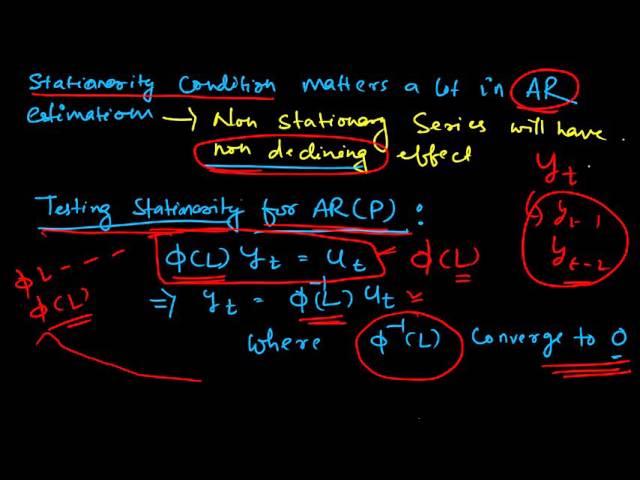 Stationarity Condition matters a lot in AR
estimation → Non Stationary Series will have
non declining effect
yₜ
Testing Stationarity for AR(P) :
yₜ₋₁
yₜ₋₂
ϕ(L) yₜ = uₜ
ϕ(L)
ϕL - - - -
ϕ(L)
⇒ yₜ = ϕ⁻¹(L) uₜ
where ϕ⁻¹(L) Converge to 0